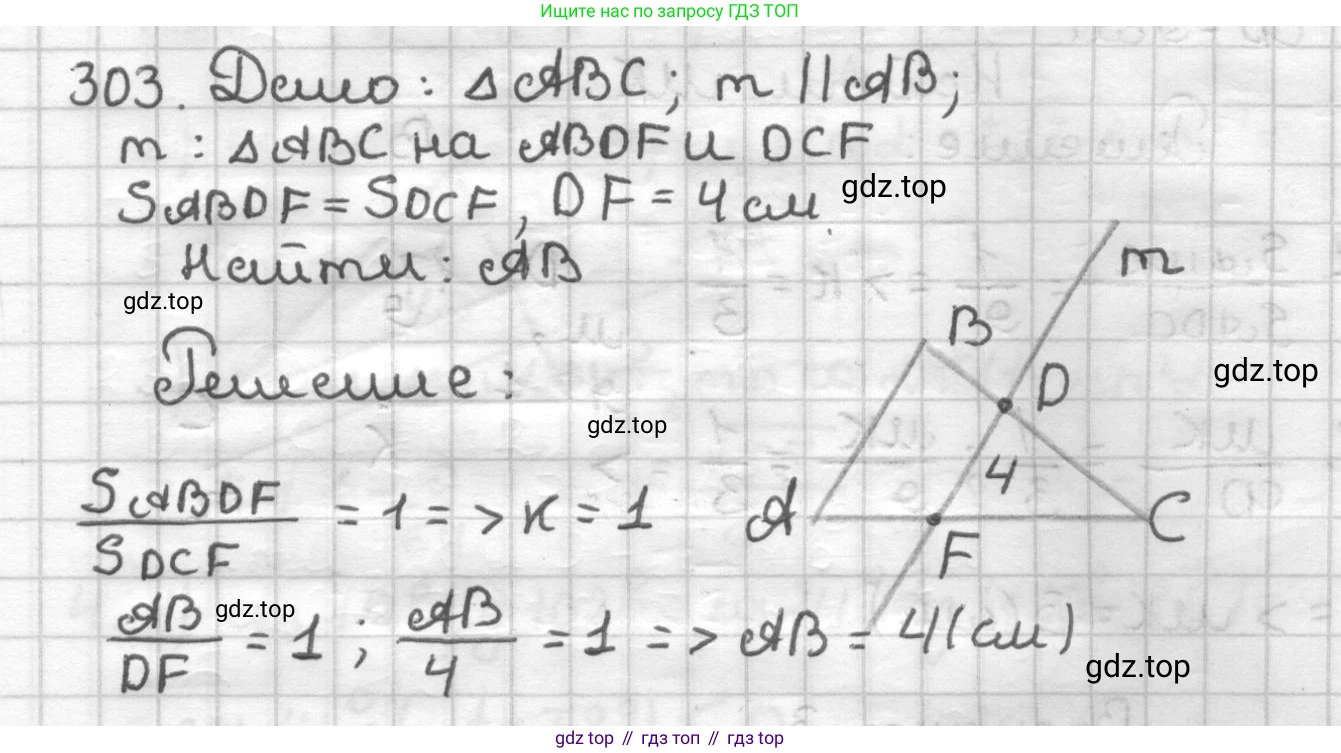 Ищите нас по запросу ГДЗ ТОП
303. Дано: △ABC; m || AB;
m : △ABC на ABDF и DCF
SABDF = SDCF, DF = 4 см
gdz.top
Найти: AB
gdz.top
m
B
Решение:
gdz.top
D
gdz.top
4
SABDF / SDCF = 1 => K = 1
A
C
F
AB / DF = 1 ; AB / 4 = 1 => AB = 4 (см)
gdz.top
gdz.top
gdz top // гдз топ // гдз top